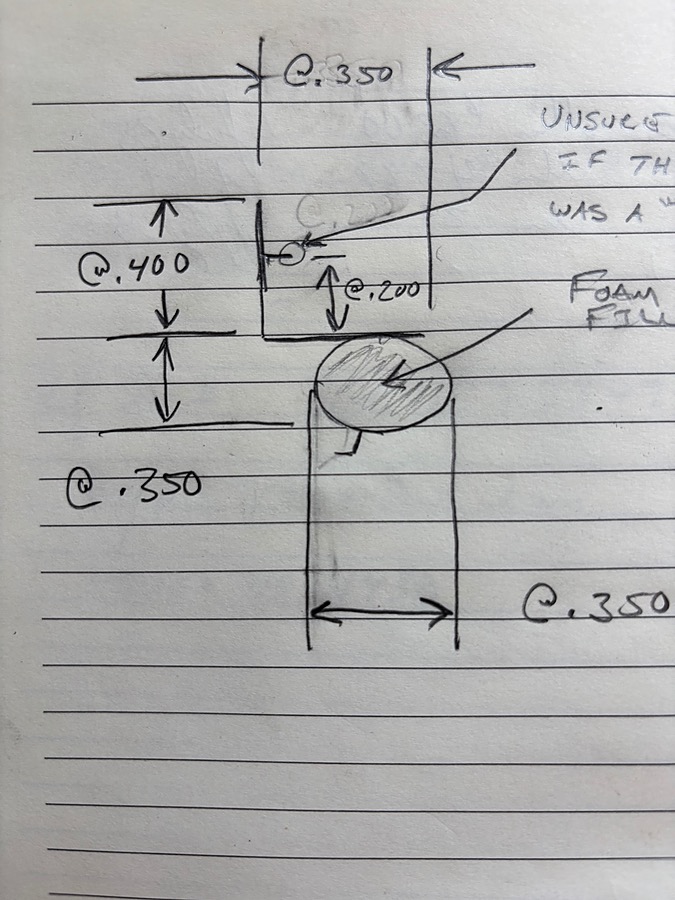 @.350
UNSURE
IF TH
WAS A "
@.400
@.200
FOAM
FILL
@ .350
@.350